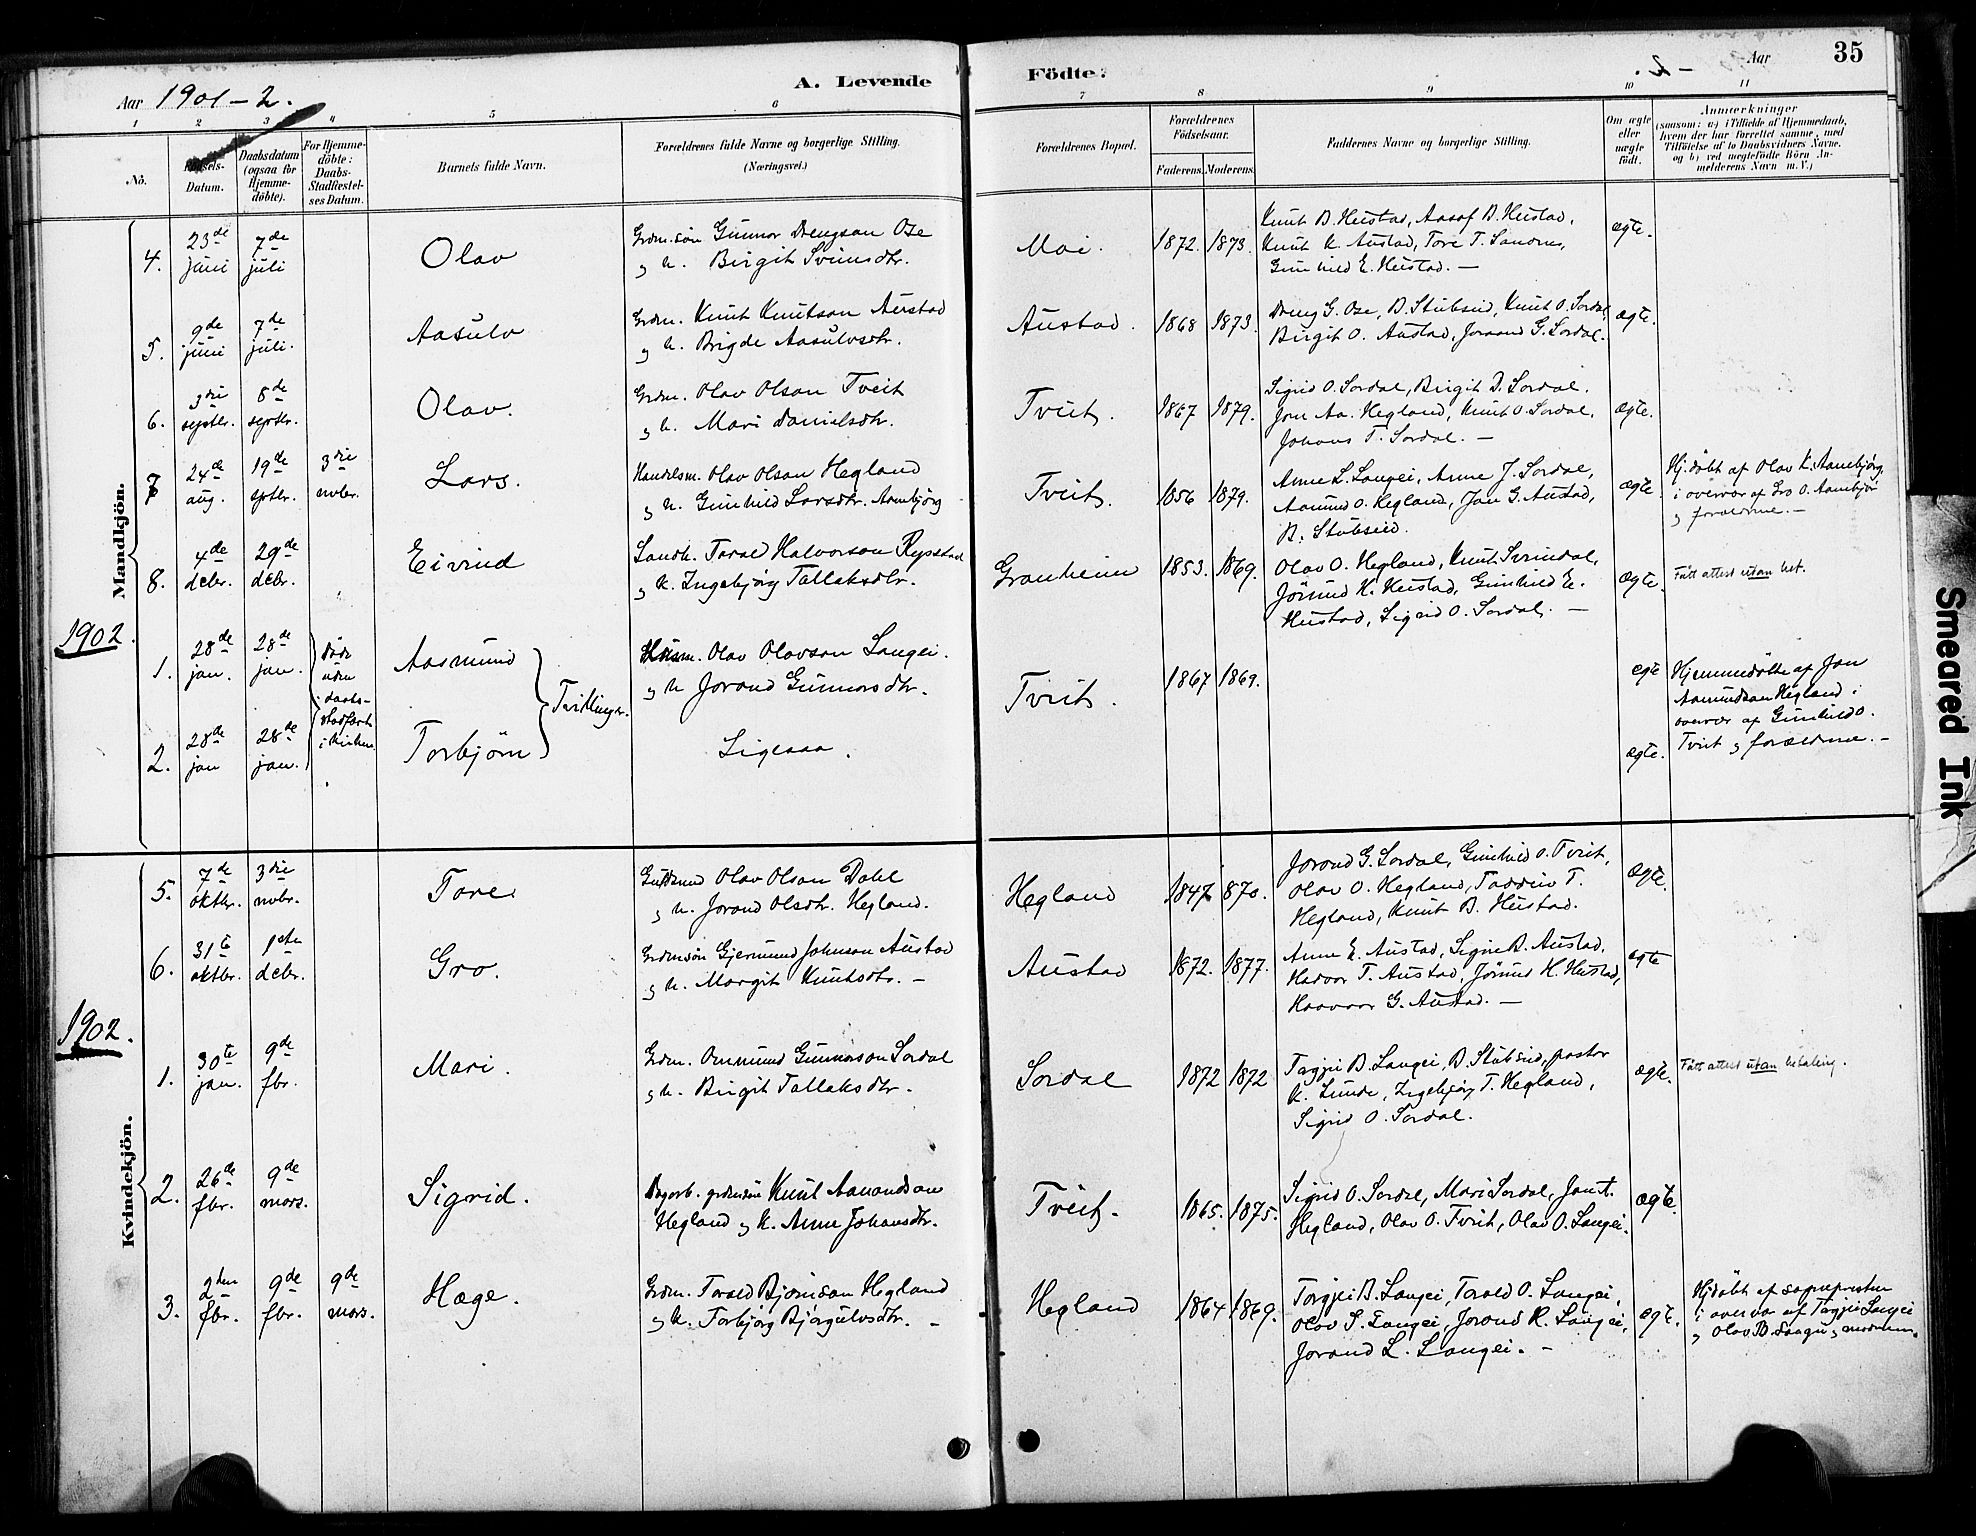 35
Aar 1901-2.
A. Levende
Födte.
Aar
1
2
3
4
5
6
7
8
9
10
11
No.
Datum.
Daabsdatum
(ogsaa for
Hjemme-
döbte).
For Hjemme-
döbte:
Daabs-
Stadfæstel-
ses Datum.
Barnets fulde Navn.
Forældrenes fulde Navne og borgerlige Stilling.
(Næringsvei.)
Forældrenes Bopæl.
Forældrenes
Födselsaar.
Faderens. Moderens.
Faddernes Navne og borgerlige Stilling.
Om ægte
eller
uægte
födt.
Anmærkninger
(saasom: a) i Tilfælde af Hjemmedaab,
hvem der har forrettet samme, med
Tilföielse af to Daabsvidners Navne.
og b) ved uægtefödte Börn An-
melderens Navn m. V.)
Mandkjön.
4.
23de juni
7de juli
Olav
Grdm.sön Gunnar Drengson Ose
og h. Birgit Sveinsdtr.
Moi.
1872. 1873.
Knut B. Hustad, Aasof B. Hustad,
Knut K. Austad, Tore T.
Gunhild E. Hustad. —
ægte.
5.
9de juni
7de juli.
Aasulv
Grdm. Knut Knutson Austad
og h. Brigde Aasulvsdtr.
Austad.
1868 1873.
Dreng G. Ose, B. Stubseid, Knut O. Sordal
Birgit O. Austad, Joraand G. Sordal.
ægte.
6.
3die septbr.
8de septbr.
Olav.
Grdm. Olav Olson Tveit
og h. Mari Danielsdtr.
Tveit.
1867 1879.
Sigrid O. Sordal, Birgit D. Sordal.
Jon Aa. Hegland, Knut O. Sordal,
Johans T. Sordal. —
ægte.
7
24de aug.
19de sptbr.
3die novbr.
Lars.
Handelsm. Olav Olson Hegland
og h. Gunhild Larsdtr. Aamebjörg
Tveit.
1856 1879.
Anne L. Langei, Anne J. Sordal,
Aamund O. Hegland, Jon G. Austad,
B. Stubseid.
ægte.
Hj.döbt af Olav K. Aamebjörg,
i overvær af Gro O. Aamebjör
og forældrene. —
8.
4de debr.
29de debr.
Eivind
Landh. Tarald Halvorson Rysstad
og k. Ingebjörg Tallaksdtr.
Granheim
1853. 1869.
Olav O. Hegland, Knut Sveindal,
Jörund K. Hustad, Gunhild E.
Hustad, Sigrid O. Sordal. —
ægte.
Fått attest utan bet.
1902.
1.
28de jan.
28de jan.
döde
uden
daabs-
stadfæst.
i kirken
Aasmund
Tvillinger.
Husm. Olav Olavson Langei.
og h Jorand Gunnarsdtr.
Tveit.
1867 1869.
egte
Hjemmedöbte af Jon
Aamundson Hegland i
overvær af Gunhild O.
Tveit og forældrene. —
2.
28de jan
28de jan.
Torbjörn
Ligesaa.
ægte.
Kvindekjön.
5.
7de oktbr.
3die novbr.
Tore
Olav Olson Dahl
og h. Jorand Olsdtr. Hegland.
Hegland
1847 870.
Jorand G. Sordal, Gunhild O. Tveit,
Olav O. Hegland, T.
Hegland, Knut B. Hustad.
ægte.
6.
31te oktbr.
1ste debr.
Gro.
Grdmsön Gjermund Johnson Austad
og h. Margit Knutsdtr. —
Austad
1872. 1877.
Anne E. Austad, Signe B. Austad,
Havor T. Austad, Jörund K. Hustad,
Haavaar G. Austad. —
ægte
1902.
1.
30te jan.
9de fbr.
Mari.
Grdm. Ommund Gunnarson Sordal
og h. Birgit Tallaksdtr.
Sordal
1872 1872
Targjei B. Langei, B. Stubseid, pastor
K. Lunde, Ingebjörg T. Hegland,
Sigrid O. Sordal.
ægte.
Fått attest utan betaling.
2.
26de fbr.
9de mars.
Sigrid.
Dagarb. grdmsön Knut Aamundson
Hegland og k. Anne Johansdtr.
Tveit.
1865. 1875.
Sigrid O. Sordal, Mari Sordal, Jon A.
Hegland, Olav O. Tveit, Olav O. Langei.
ægte.
3.
2den fbr.
9de fbr.
9de mars.
Hæge.
Grdm. Tarald Björnson Hegland
og k. Torbjörg Björgulvsdtr. —
Hegland
1864 1869.
Torgjei B. Langei, Tarald O. Langei,
Olav S. Langei, Jorand R. Langei,
Jorand L. Langei. —
ægte.
Hj.döbt af sognepresten
i overvær af Targjei Langei
og Olav B. Langei og moderen.
Smeared Ink